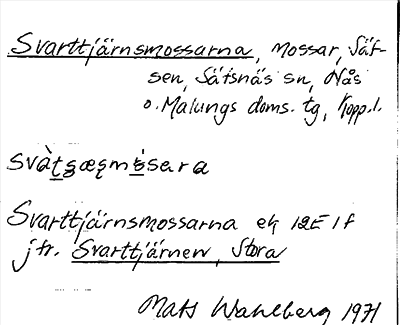 Svarttjärnsmossarna, mossar, Säf-
sen, Säfsnäs sn, Nås
o. Malungs doms. tg, Kopp. l.
Svarttjärnsmossarna ek 12E 1f
jfr. Svarttjärnen, Stora
Mats Wahlberg 1971